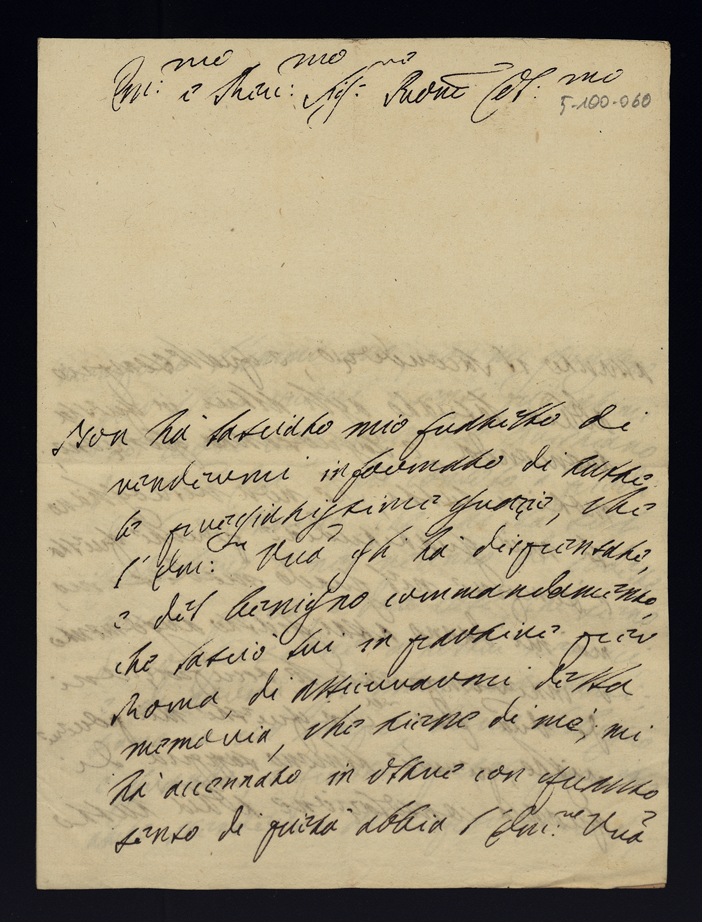 Em:mo e Reu:mo Sig:re Padne Col:mo
5-100-060
Non hà lasciato mio fratello di
rendermi informato di tutte
le pregiatissime grazie, che
l'Em:za Vrã gli hà dispensate,
e del benigno commandamento,
che lasciò lui in partire per
Roma, di assicurarmi della
memoria, che tiene di me, mi
hà accennato in oltre con quanto
senso di pietà abbia l'Em:za Vrã